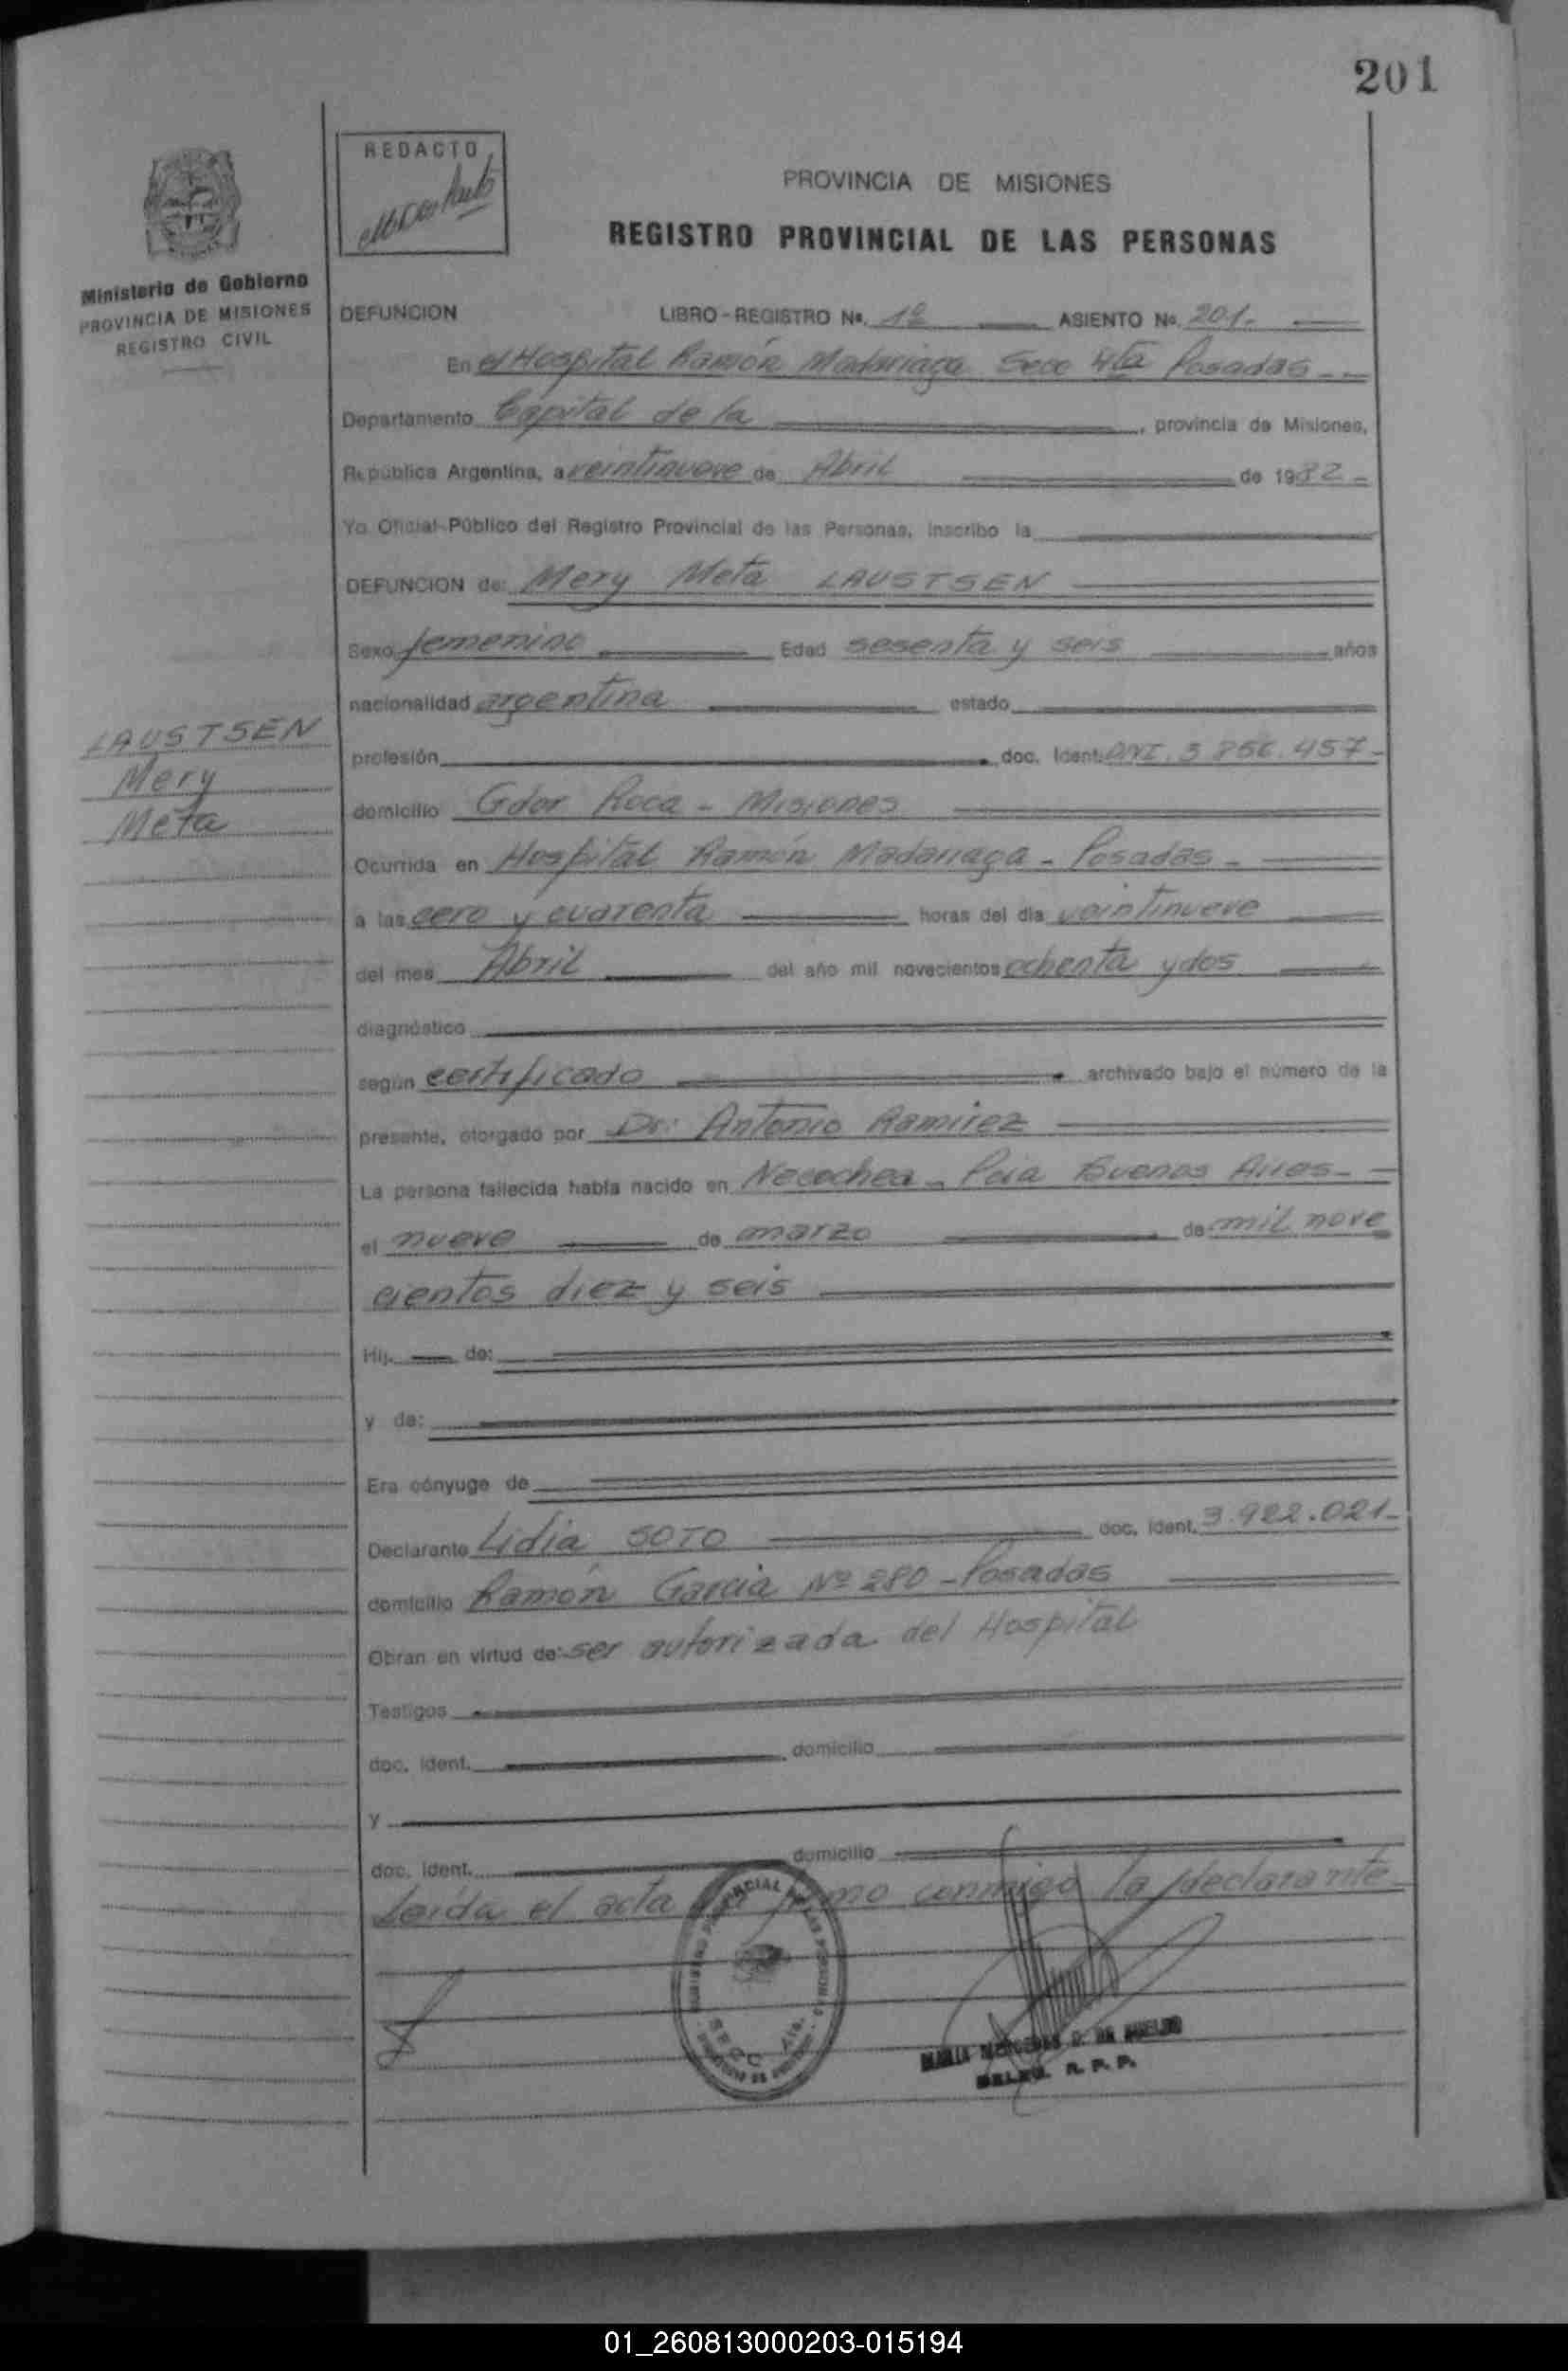 201
REDACTO
PROVINCIA DE MISIONES
REGISTRO PROVINCIAL DE LAS PERSONAS
Ministerio de Gobierno
PROVINCIA DE MISIONES
REGISTRO CIVIL
DEFUNCION LIBRO - REGISTRO No. 1º ASIENTO No. 201.-
En el Hospital Ramón Madariaga Secc 4ta Posadas - -
Departamento Capital de la , provincia de Misiones,
República Argentina, a veintinueve de Abril de 1982 -
Yo Oficial Público del Registro Provincial de las Personas, inscribo la
DEFUNCION de: Mery Meta LAUSTSEN
Sexo femenino Edad sesenta y seis años
nacionalidad argentina estado
LAUSTSEN
Mery
Meta
profesión doc. Ident. DNI. 457-
domicilio Gdor Roca - Misiones
Ocurrida en Hospital Ramón Madariaga - Posadas -
a las cero y cuarenta horas del día veintinueve
del mes Abril del año mil novecientos ochenta y dos
diagnóstico
según certificado archivado bajo el número de la
presente, otorgado por Dr: Antonio Ramirez
La persona fallecida había nacido en Necochea - Pcia Buenos Aires -
el nueve de marzo de mil nove
cientos diez y seis
Hij. de:
y de:
Era cónyuge de
Declarante Lidia SOTO doc. ident. 3.922.021-
domicilio Ramón Garcia Nº 280 - Posadas
Obran en virtud de: ser autorizada del Hospital
Testigos
doc. ident. domicilio
y
doc. ident. domicilio
Leída el acta conmigo la declarante
SECC 4ta.
MARIA MERCEDES
DELEG. R. P. P.
01_260813000203-015194